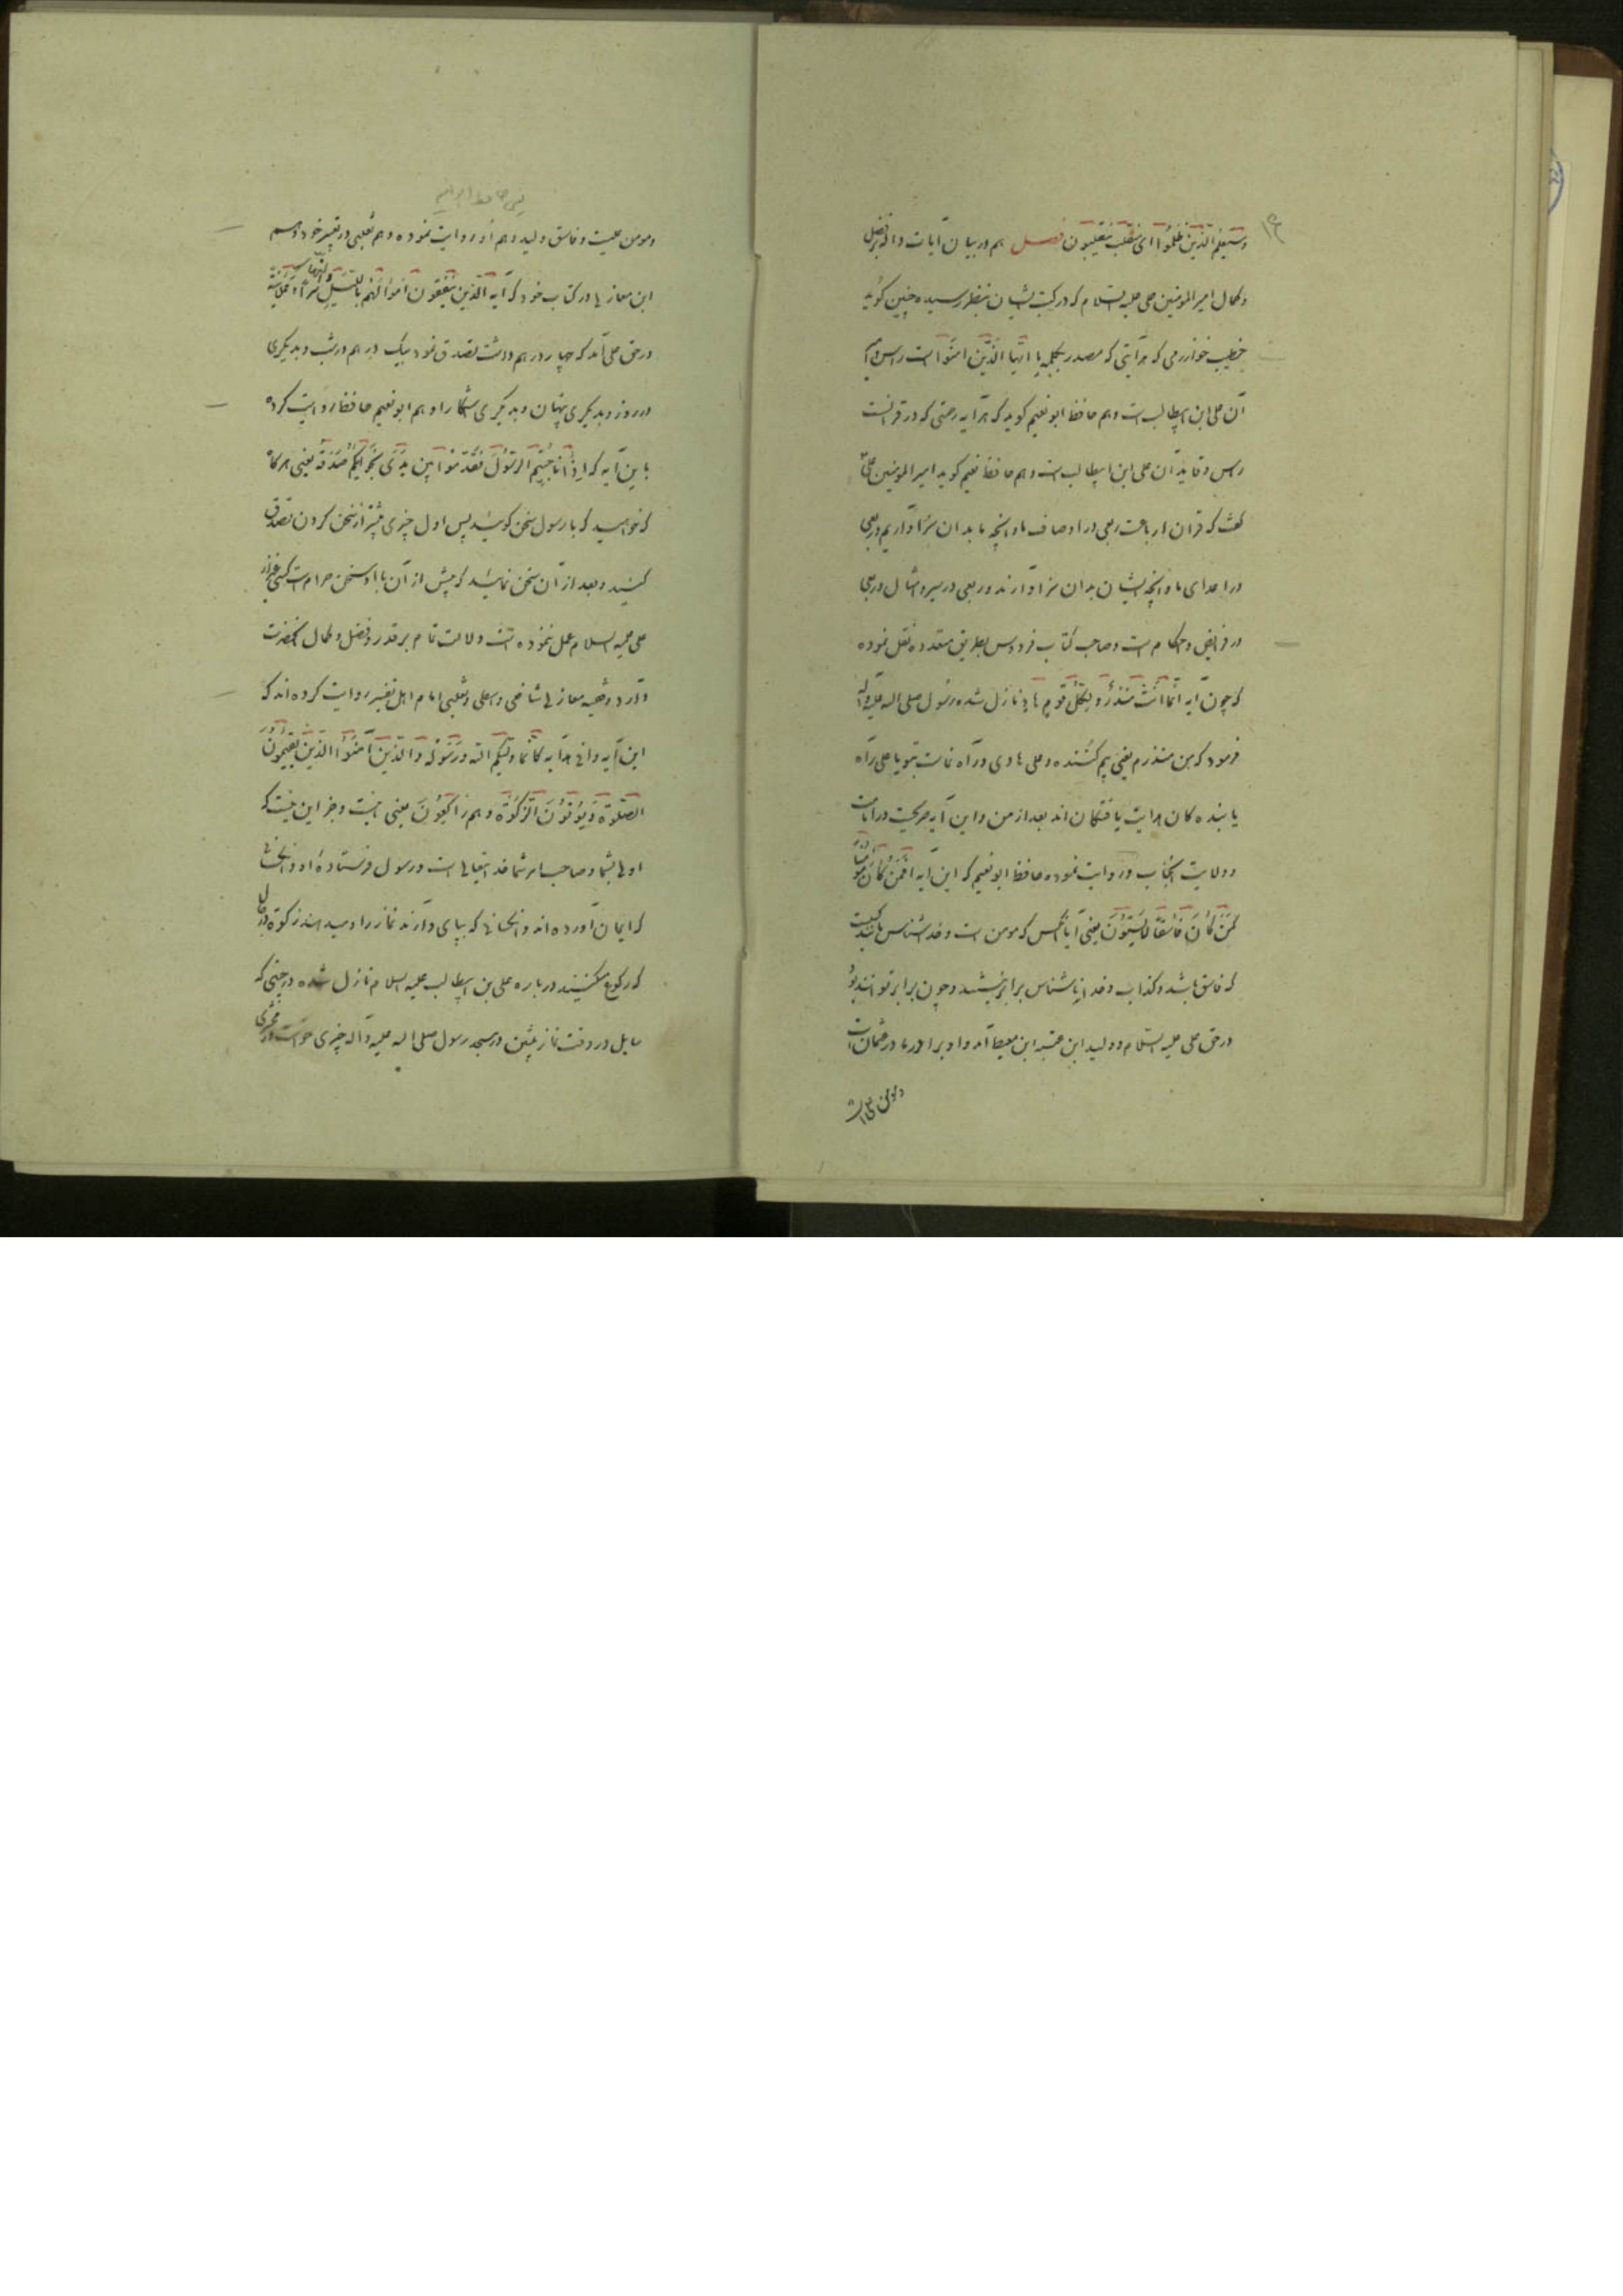 وسیعلم الذین ظلموا ای منقلب ینقلبون فصل هم در بیان آیات داله بر فضل
و کمال امیر المومنین علی علیه السلام که در کتب ایشان بنظر رسیده چنین گوید
خطیب خوارزمی که هر آیتی که مصدر بکلمه یا ایها الذین امنوا است راس و امیر
آن علی ابن ابیطالب است و هم حافظ ابو نعیم کوید که هر آیه رحمتی که در قرانست
راس و قاید آن علی ابن ابیطالب است و هم حافظ نعیم کوید امیر المومنین علی
گفت که قران ارباعست ربعی در اوصاف ما و انچه ما بدان سزاواریم و ربعی
در اعدای ما و انچه ایشان بدان سزاوارند و ربعی در سیر و امثال و ربعی
در فرایض و احکام است و صاحب کتاب فردوس بطریق متعدده نقل نموده
که چون آیه انما انت منذر و لکل قوم هاد نازل شده رسول صلی اله علیه و آله
فرمود که من منذرم یعنی بیم کننده و علی هادی و راه نماست بتو یا علی راه
یابنده کان هدایت یافتکان اند بعد از من و این آیه صریحست در امامت
و ولایت انجناب و روایت نموده حافظ ابو نعیم که این آیه افمن کان مومنا
کمن کان فاسقا لا یستوون یعنی آیا آنکس که مومن است و خدا شناس مانند کسیست
که فاسق باشد و کذاب و خدا ناشناس برابر نیستند و چون برابر توانند بود
در حق علی علیه السلام و ولید ابن عقبه ابن معیط آمد و او برادر مادر عثمان است
و مومن علی است
یعنی حافظ ابو نعیم
و مومن علیست و فاسق ولید و هم او روایت نموده و هم ثعلبی در تفسیر خود و هم
ابن مغازلی در کتاب خود که آیه الذین ینفقون اموالهم باللیل والنهار سرا و علانیة
در حق علی آمد که چهار درهم داشت تصدق نمود بیک درهم در شب و بدیکری
در روز و بدیکری پنهان و بدیکری آشکارا و هم ابو نعیم حافظ روایت کرده
باین آیه که اذا ناجیتم الرسول فقدموا بین یدی نجویکم صدقة یعنی هرکاه
که خواهید که با رسول سخن کوئید پس اول چیزی پیشتر از سخن کردن تصدق
کنید و بعد از آن سخن نمائید که پیش از آن با او سخن حرام است کسی غیر از
علی علیه السلام عمل ننموده است و دلالت تمام بر قدر و فضل و کمال آنحضرت
دارد و فقیه مغازلی شافعی و ثعلبی امام اهل تفسیر روایت کرده اند که
این آیه وافی هدایه که انما ولیکم الله ورسوله والذین آمنوا الذین یقیمون
الصلوة ویؤتون الزکوة وهم راکعون یعنی نیست و جز این نیست که
اولی بشما و صاحب امر شما خدایتعالی است و رسول فرستاده او و آنکسانی
که ایمان آورده اند و آنکسانی که بپای دارند نماز را و میدهند زکوة در حال
که رکوع میکنند درباره علی بن ابیطالب علیه السلام نازل شده در حینی که
سایل در وقت نماز پیشین در مسجد رسول صلی اله علیه و آله چیزی خواست